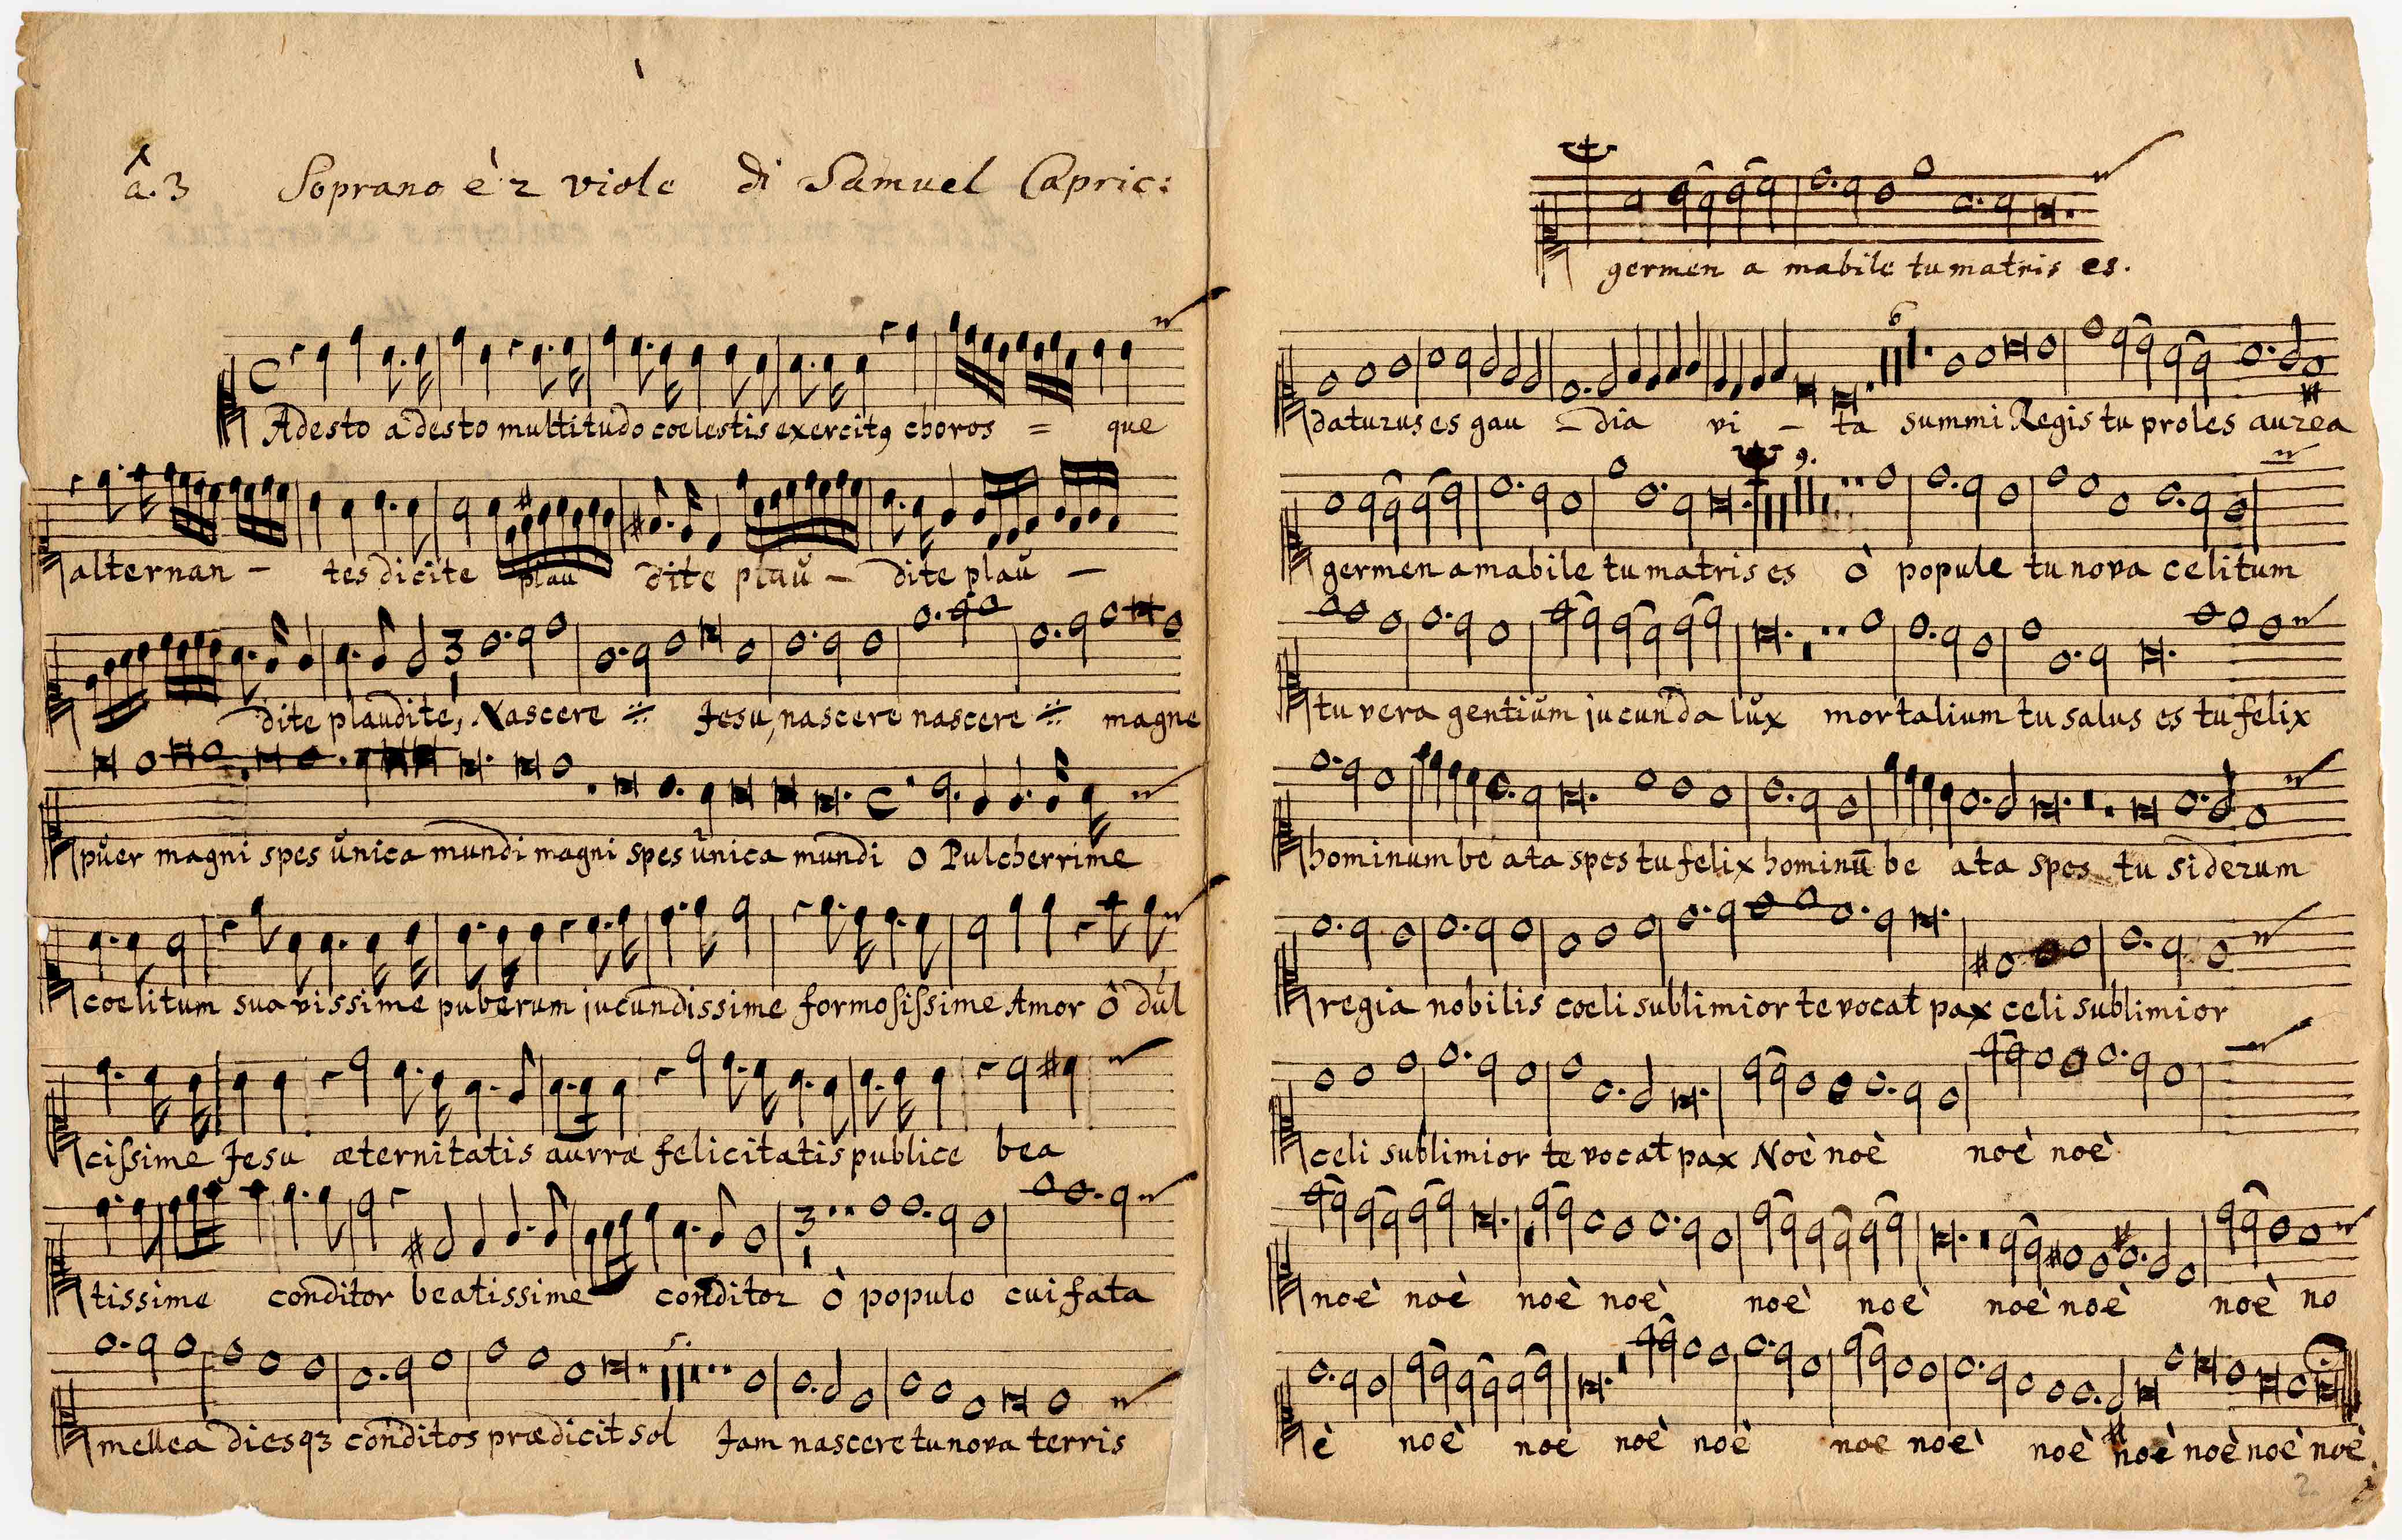 a. 3 Soprano è 2 viole di Samuel Capric:
Adesto adesto multitudo coelestis exercitꝯ choros = que
alternan – tes dicite plau dite plaŭ – dite plaŭ –
dite plaudite, Nascere :||: Jesu, nascere nascere :||: magne
pŭer magni spes ŭnica mundi magni spes ŭnica mundi O Pulcherrime
coelitum suavissime puberum jucundissime formosissime Amor Ô dŭl
cissime Jesu æternitatis aurræ felicitatis publice bea
tissime conditor beatissime conditor ò populo cui fata
mellea diesqꝫ conditos prædicit sol Jam nascere tu nova terris
germen a mabile tu matris es.
6
daturus es gau – dia vi – ta summi Regis tu proles aurea
9.
germen amabile tu matris es ò popule tu nova celitum
tu vera gentiŭm jucunda lŭx mortalium tu salus es tu felix
hominum be ata spes tu felix hominū be ata spes tu siderum
regia nobilis coeli sublimior te vocat pax celi sublimior
celi sublimior te vocat pax Noè noè noè noè
noè noè noè noè noè noè noè noè noè no
è noè noe noè noè noe noè noè noè noè noè noè
2.